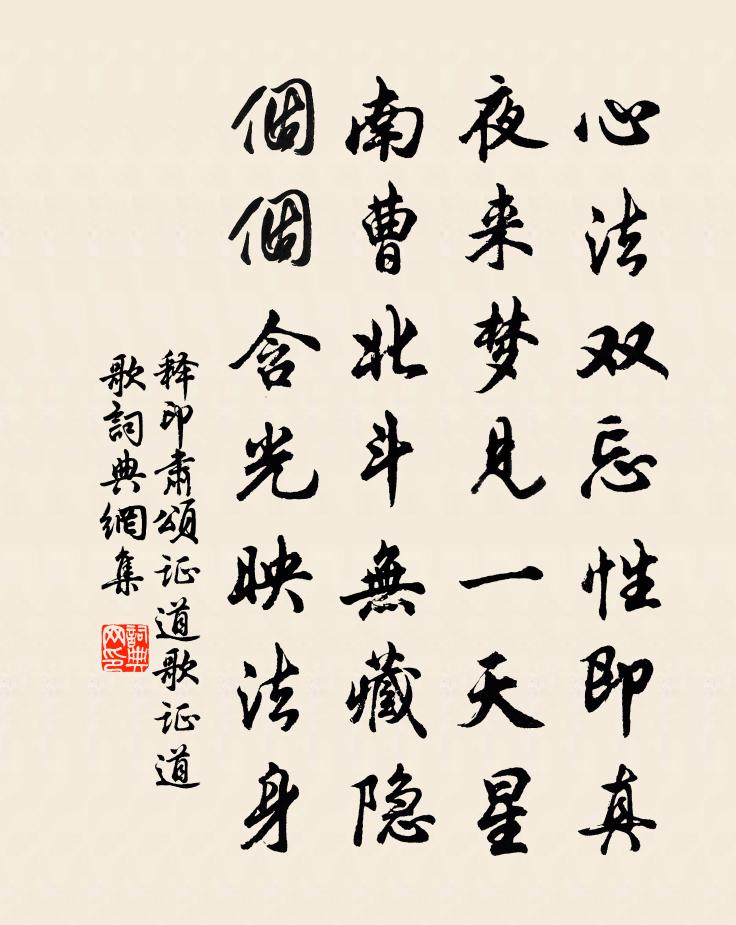 心法双忘性即真
夜来梦见一天星
南曹北斗無藏隐
個個含光映法身
释印肃頌证道歌证道
歌詞典網集
詞典
网印